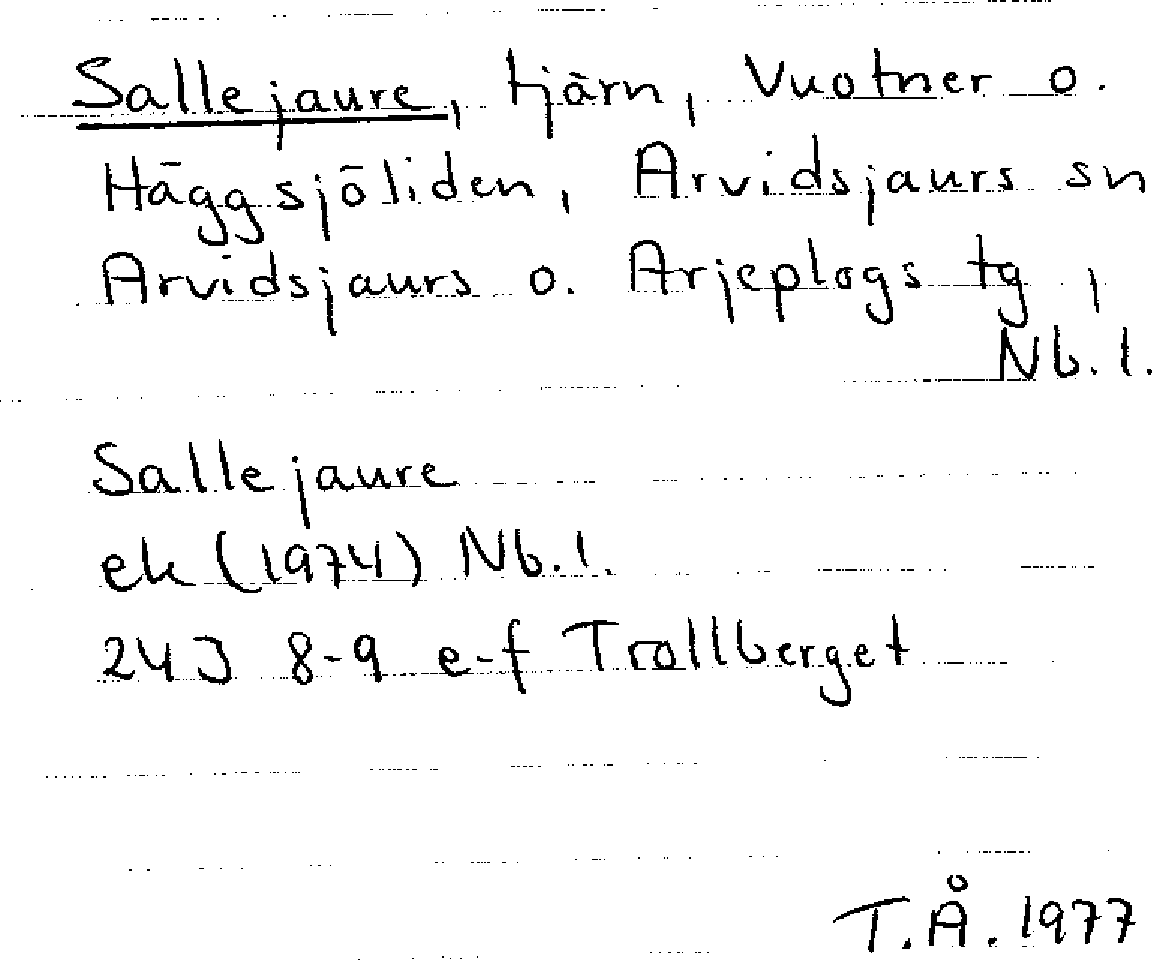 Sallejaure, tjärn, Vuotner o.
Häggsjöliden, Arvidsjaurs sn
Arvidsjaurs o. Arjeplogs tg,
Nb.l.
Sallejaure
ek (1974) Nb.l.
24J 8-9 e-f Trollberget
T.Å. 1977